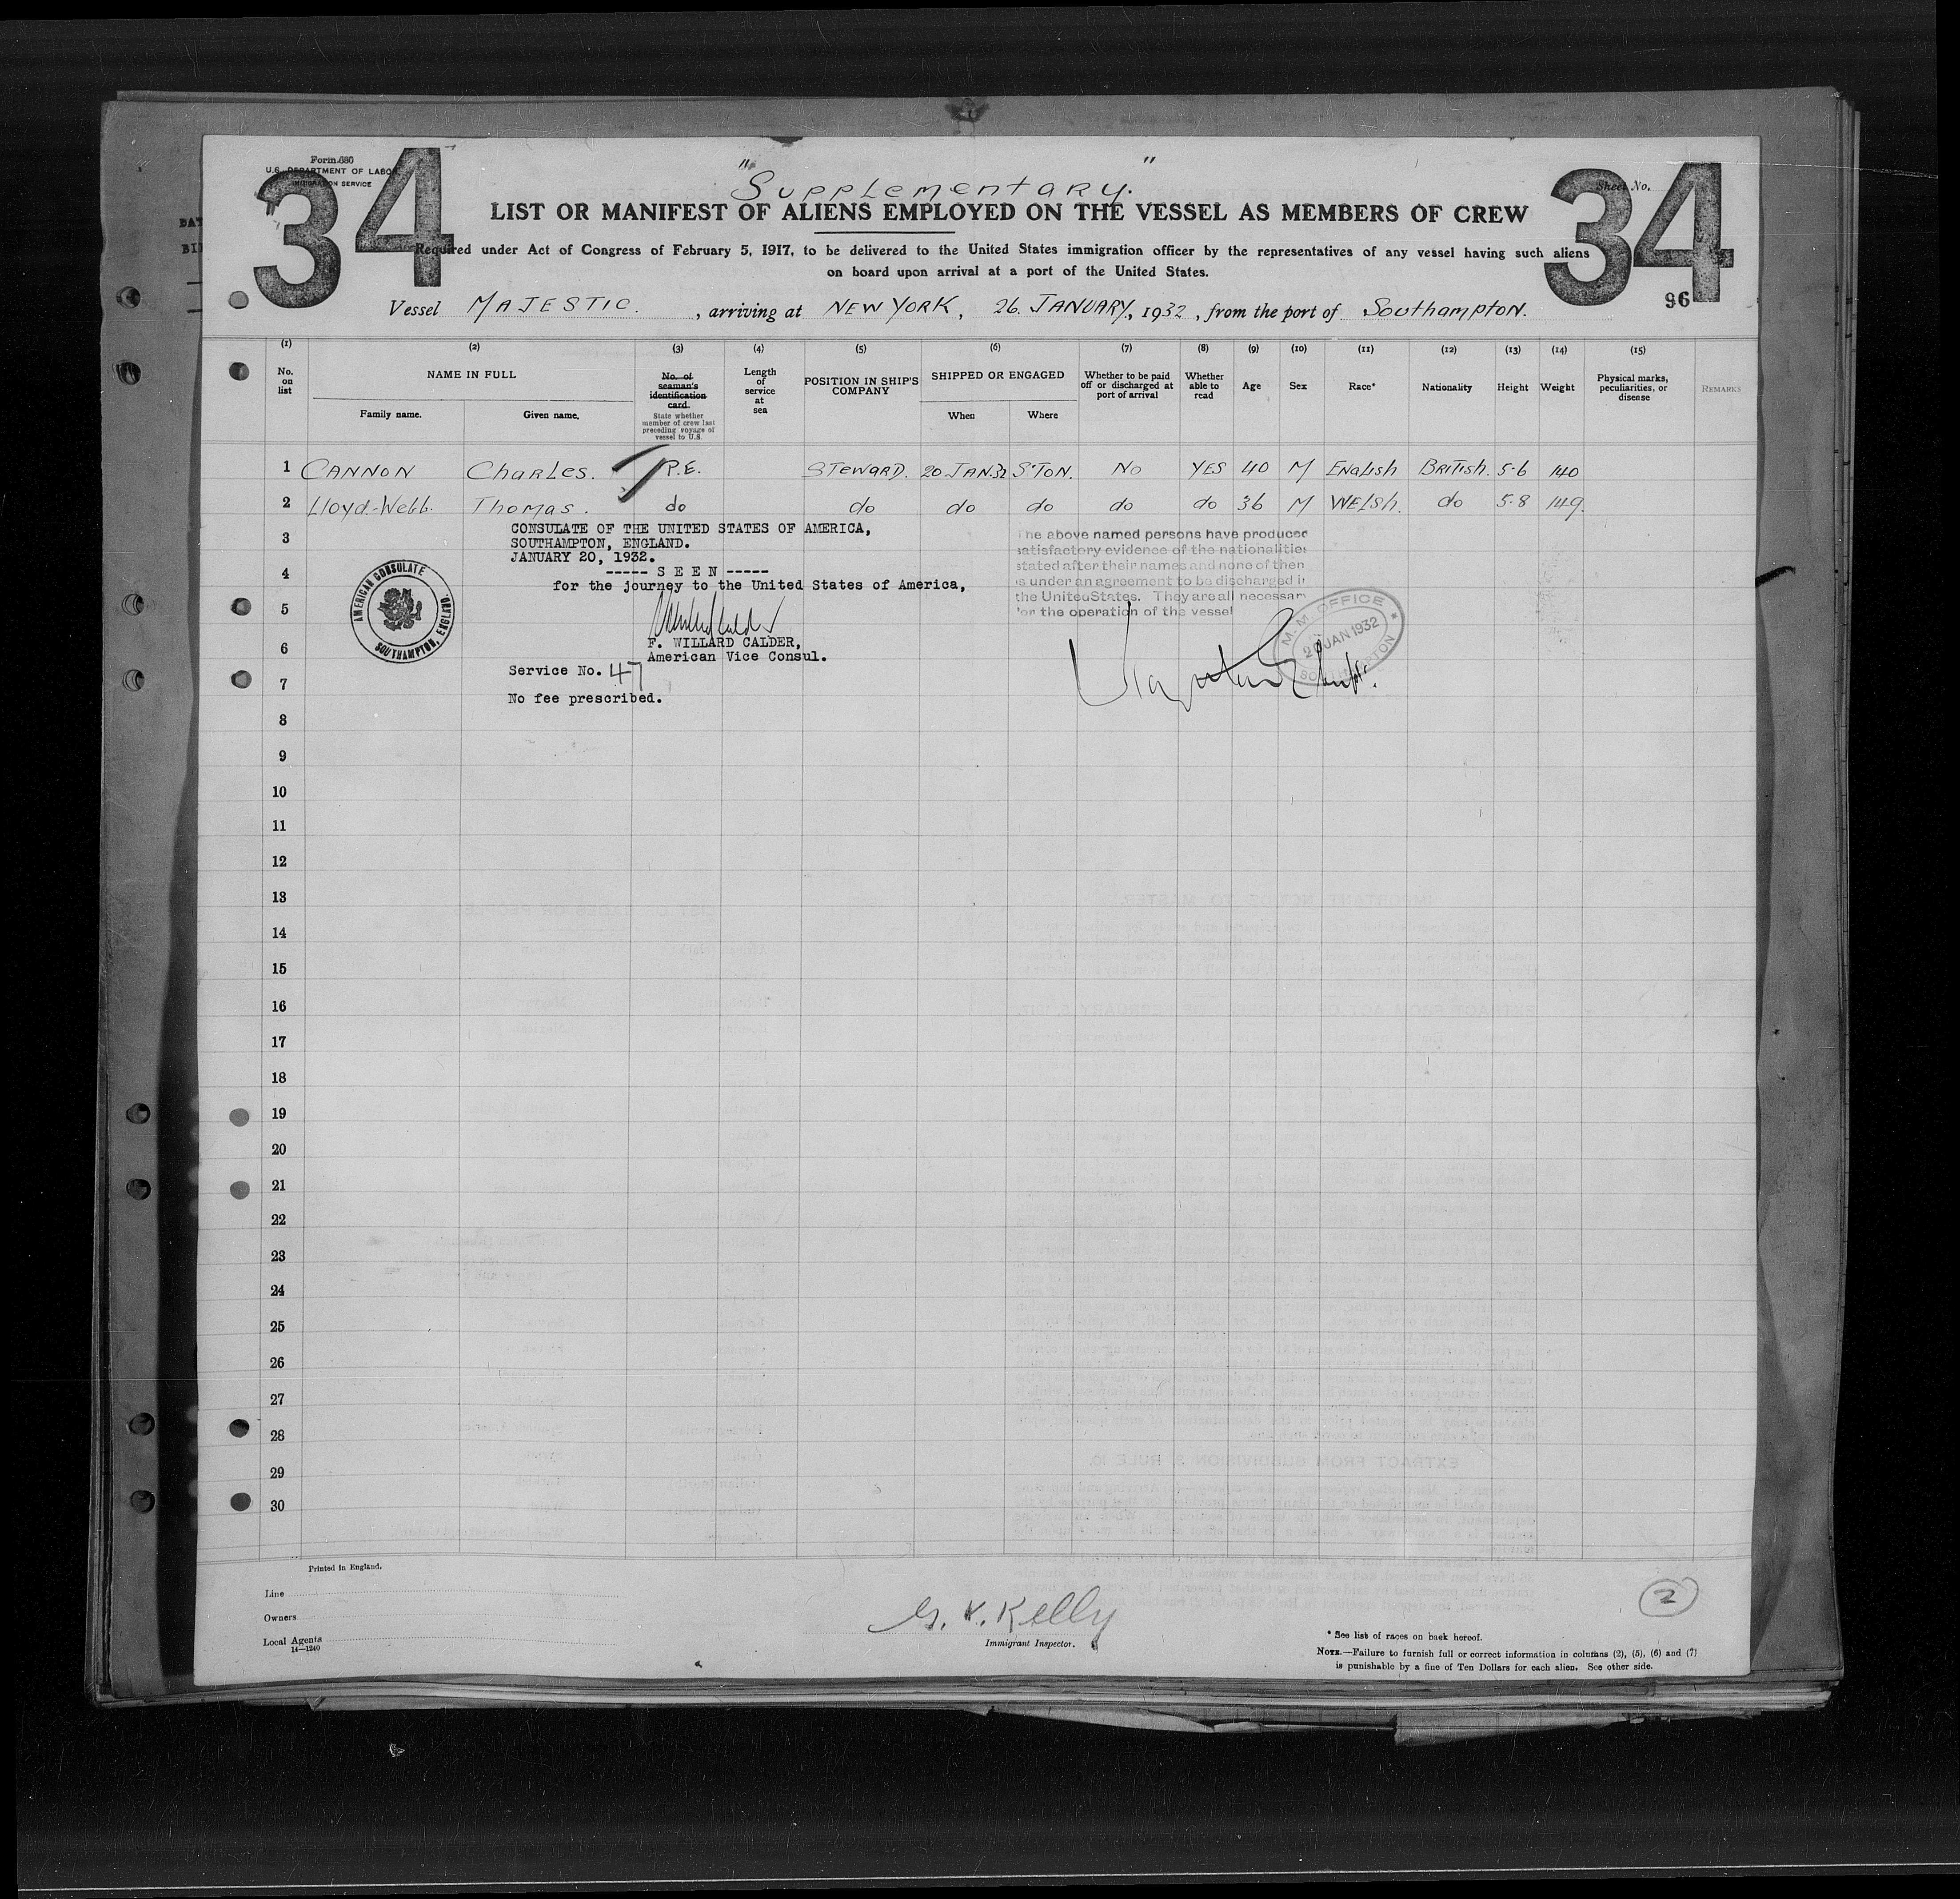 34
Form 680
U.S. DEPARTMENT OF LABOR
IMMIGRATION SERVICE
"Supplementary."
Sheet No.
34
LIST OR MANIFEST OF ALIENS EMPLOYED ON THE VESSEL AS MEMBERS OF CREW
Required under Act of Congress of February 5, 1917, to be delivered to the United States immigration officer by the representatives of any vessel having such aliens
on board upon arrival at a port of the United States.
96
Vessel MAJESTIC. , arriving at NEW YORK, 26. JANUARY, 1932, from the port of Southampton.
(1) (2) (3) (4) (5) (6) (7) (8) (9) (10) (11) (12) (13) (14) (15)
No. on list
NAME IN FULL
Family name. Given name.
No. of seaman's identification card.
State whether member of crew last preceding voyage of vessel to U.S.
Length of service at sea
POSITION IN SHIP'S COMPANY
SHIPPED OR ENGAGED
When Where
Whether to be paid off or discharged at port of arrival
Whether able to read
Age
Sex
Race*
Nationality
Height
Weight
Physical marks, peculiarities, or disease
REMARKS
1 CANNON Charles. P.E. STEWARD. 20 JAN.32 S'TON. No YES 40 M ENGLISH BRITISH. 5-6 140
2 Lloyd-Webb. Thomas. do do do do do do 36 M WELSH. do 5-8 149.
3
CONSULATE OF THE UNITED STATES OF AMERICA,
SOUTHAMPTON, ENGLAND.
JANUARY 20, 1932.
4
----- S E E N -----
for the journey to the United States of America,
5
6
F. WILLARD CALDER,
American Vice Consul.
Service No. 47
7
No fee prescribed.
AMERICAN CONSULATE
SOUTHAMPTON, ENGLAND.
The above named persons have produced
satisfactory evidence of the nationalities
stated after their names and none of them
is under an agreement to be discharged in
the United States. They are all necessary
for the operation of the vessel
M. M. OFFICE
20 JAN 1932
SOUTHAMPTON
8
9
10
11
12
13
14
15
16
17
18
19
20
21
22
23
24
25
26
27
28
29
30
Printed in England.
Line
Owners
Local Agents
14—1240
G. V. Kelly
Immigrant Inspector.
2
* See list of races on back hereof.
NOTE.—Failure to furnish full or correct information in columns (2), (5), (6) and (7)
is punishable by a fine of Ten Dollars for each alien. See other side.